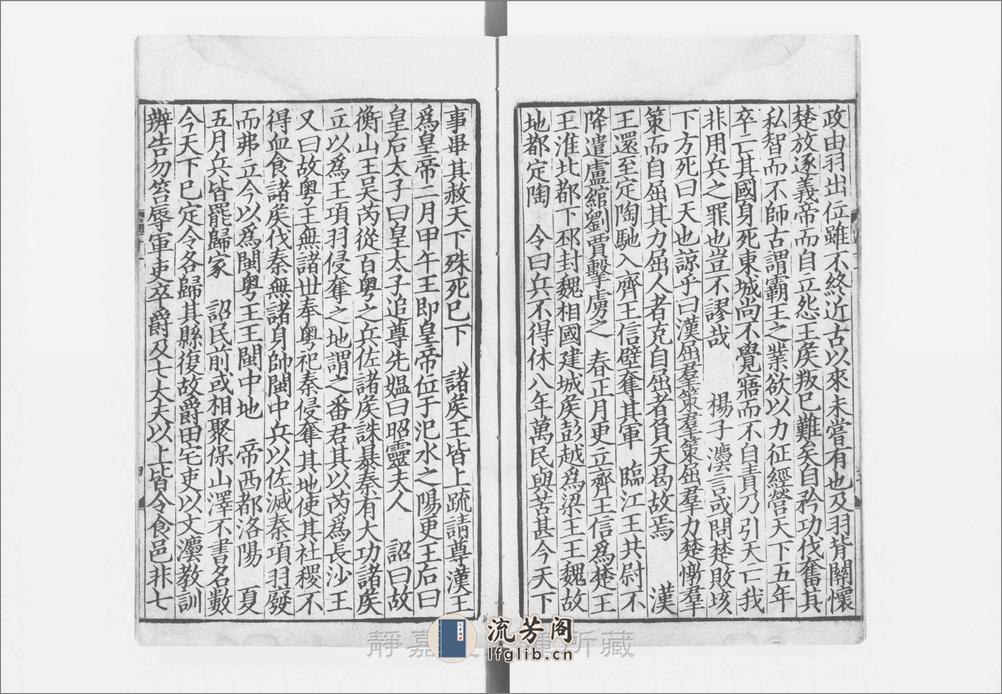 政由羽出位雖不終近古以來未嘗有也及羽背關懷
楚放逐義帝而自立怨王矦叛已難矣自矜功伐奮其
私智而不師古謂霸王之業欲以力征經營天下五年
卒亡其國身死東城尚不覺寤而不自責乃引天亡我
非用兵之罪也豈不謬哉　楊子灋言或問楚敗垓
下方死曰天也諒乎曰漢屈羣策羣策屈羣力楚憞羣
策而自屈其力屈人者克自屈者負天曷故焉　漢
王還至定陶馳入齊王信壁奪其軍　臨江王共尉不
降遣盧綰劉賈擊虜之　春正月更立齊王信爲楚王
王淮北都下邳封魏相國建城矦彭越爲梁王王魏故
地都定陶　令曰兵不得休八年萬民與苦甚今天下
事畢其赦天下殊死已下　諸矦王皆上疏請尊漢王
爲皇帝二月甲午王即皇帝位于汜水之陽更王后曰
皇后太子曰皇太子追尊先媼曰昭靈夫人　詔曰故
衡山王吴芮從百粤之兵佐諸矦誅暴秦有大功諸矦
立以爲王項羽侵奪之地謂之番君其以芮爲長沙王
又曰故粤王無諸世奉粤祀秦侵奪其地使其社稷不
得血食諸矦伐秦無諸身帥閩中兵以佐滅秦項羽廢
而弗立今以爲閩粤王王閩中地　帝西都洛陽　夏
五月兵皆罷歸家　詔民前或相聚保山澤不書名數
今天下已定令各歸其縣復故爵田宅吏以文灋教訓
辨告勿笞辱軍吏卒爵及七大夫以上皆令食邑非七
流芳阁
lfglib.cn